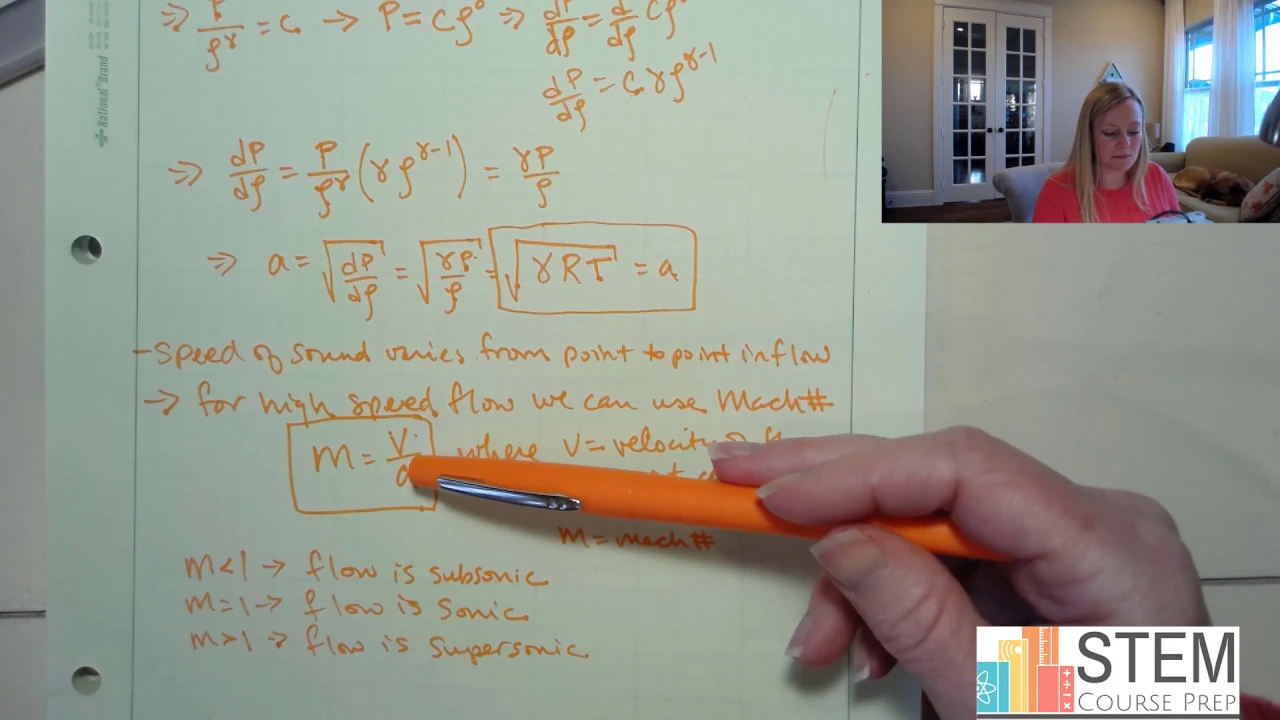 ⇒ P/ρ^γ = c → P = Cρ^γ ⇒ dP/dρ = d/dρ Cρ^γ
dP/dρ = Cγρ^(γ-1)
⇒ dP/dρ = P/ρ^γ (γρ^(γ-1)) = γP/ρ
⇒ a = √(dP/dρ) = √(γP/ρ) = √(γRT) = a
- Speed of sound varies from point to point in flow
→ for high speed flow we can use Mach#
M = V/a where V = velocity
M = mach#
M<1 → flow is subsonic
M=1 → flow is sonic
M>1 → flow is supersonic
National® Brand
STEM
COURSE PREP